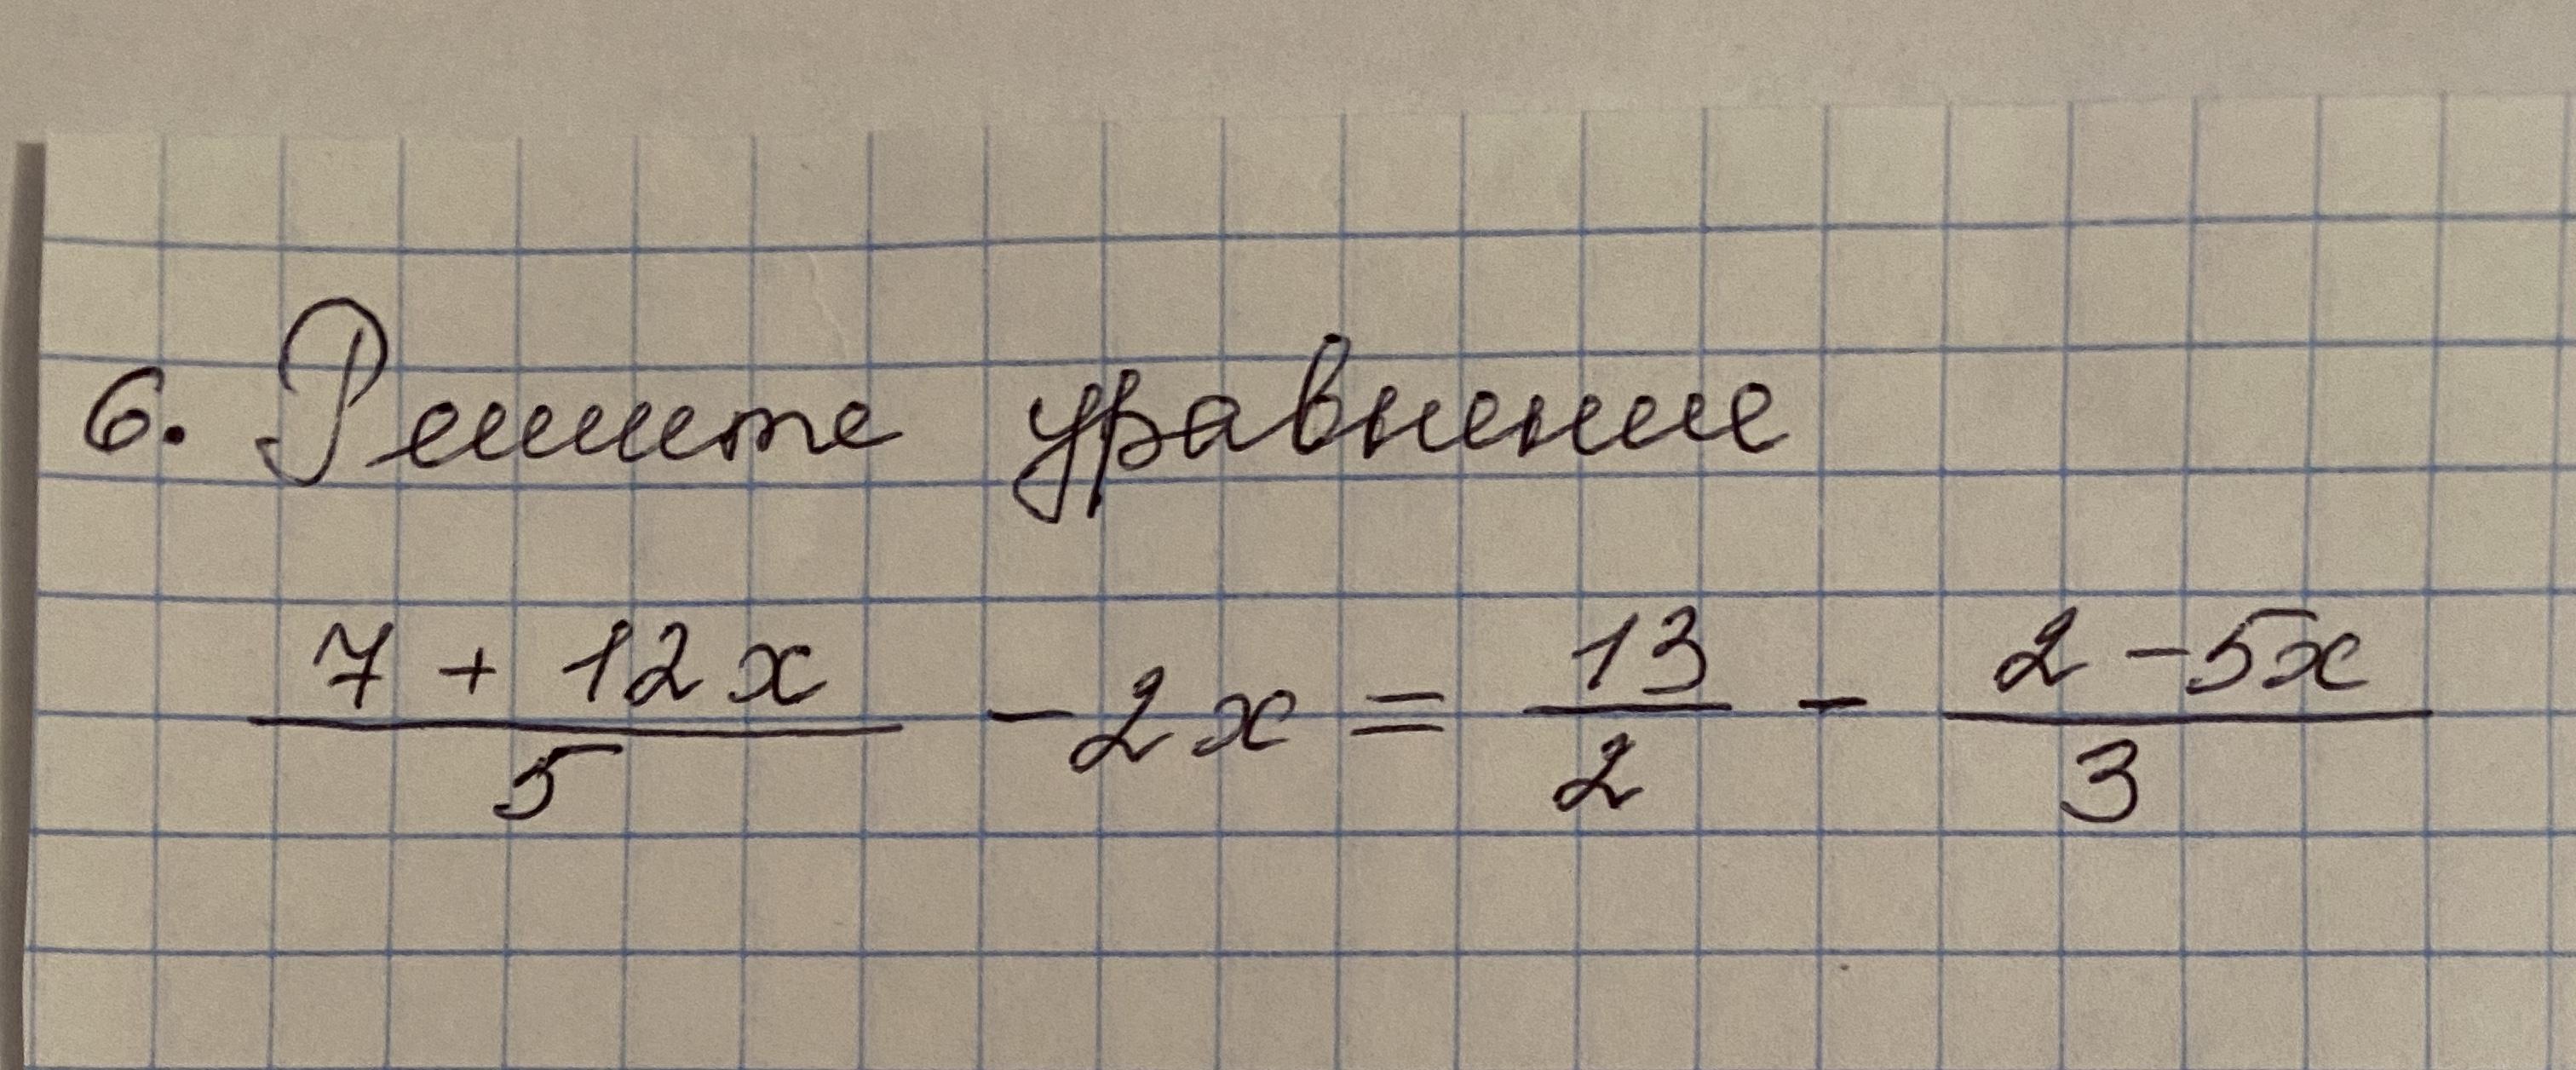 6. Решите уравнение
(7 + 12x)/5 - 2x = 13/2 - (2 - 5x)/3